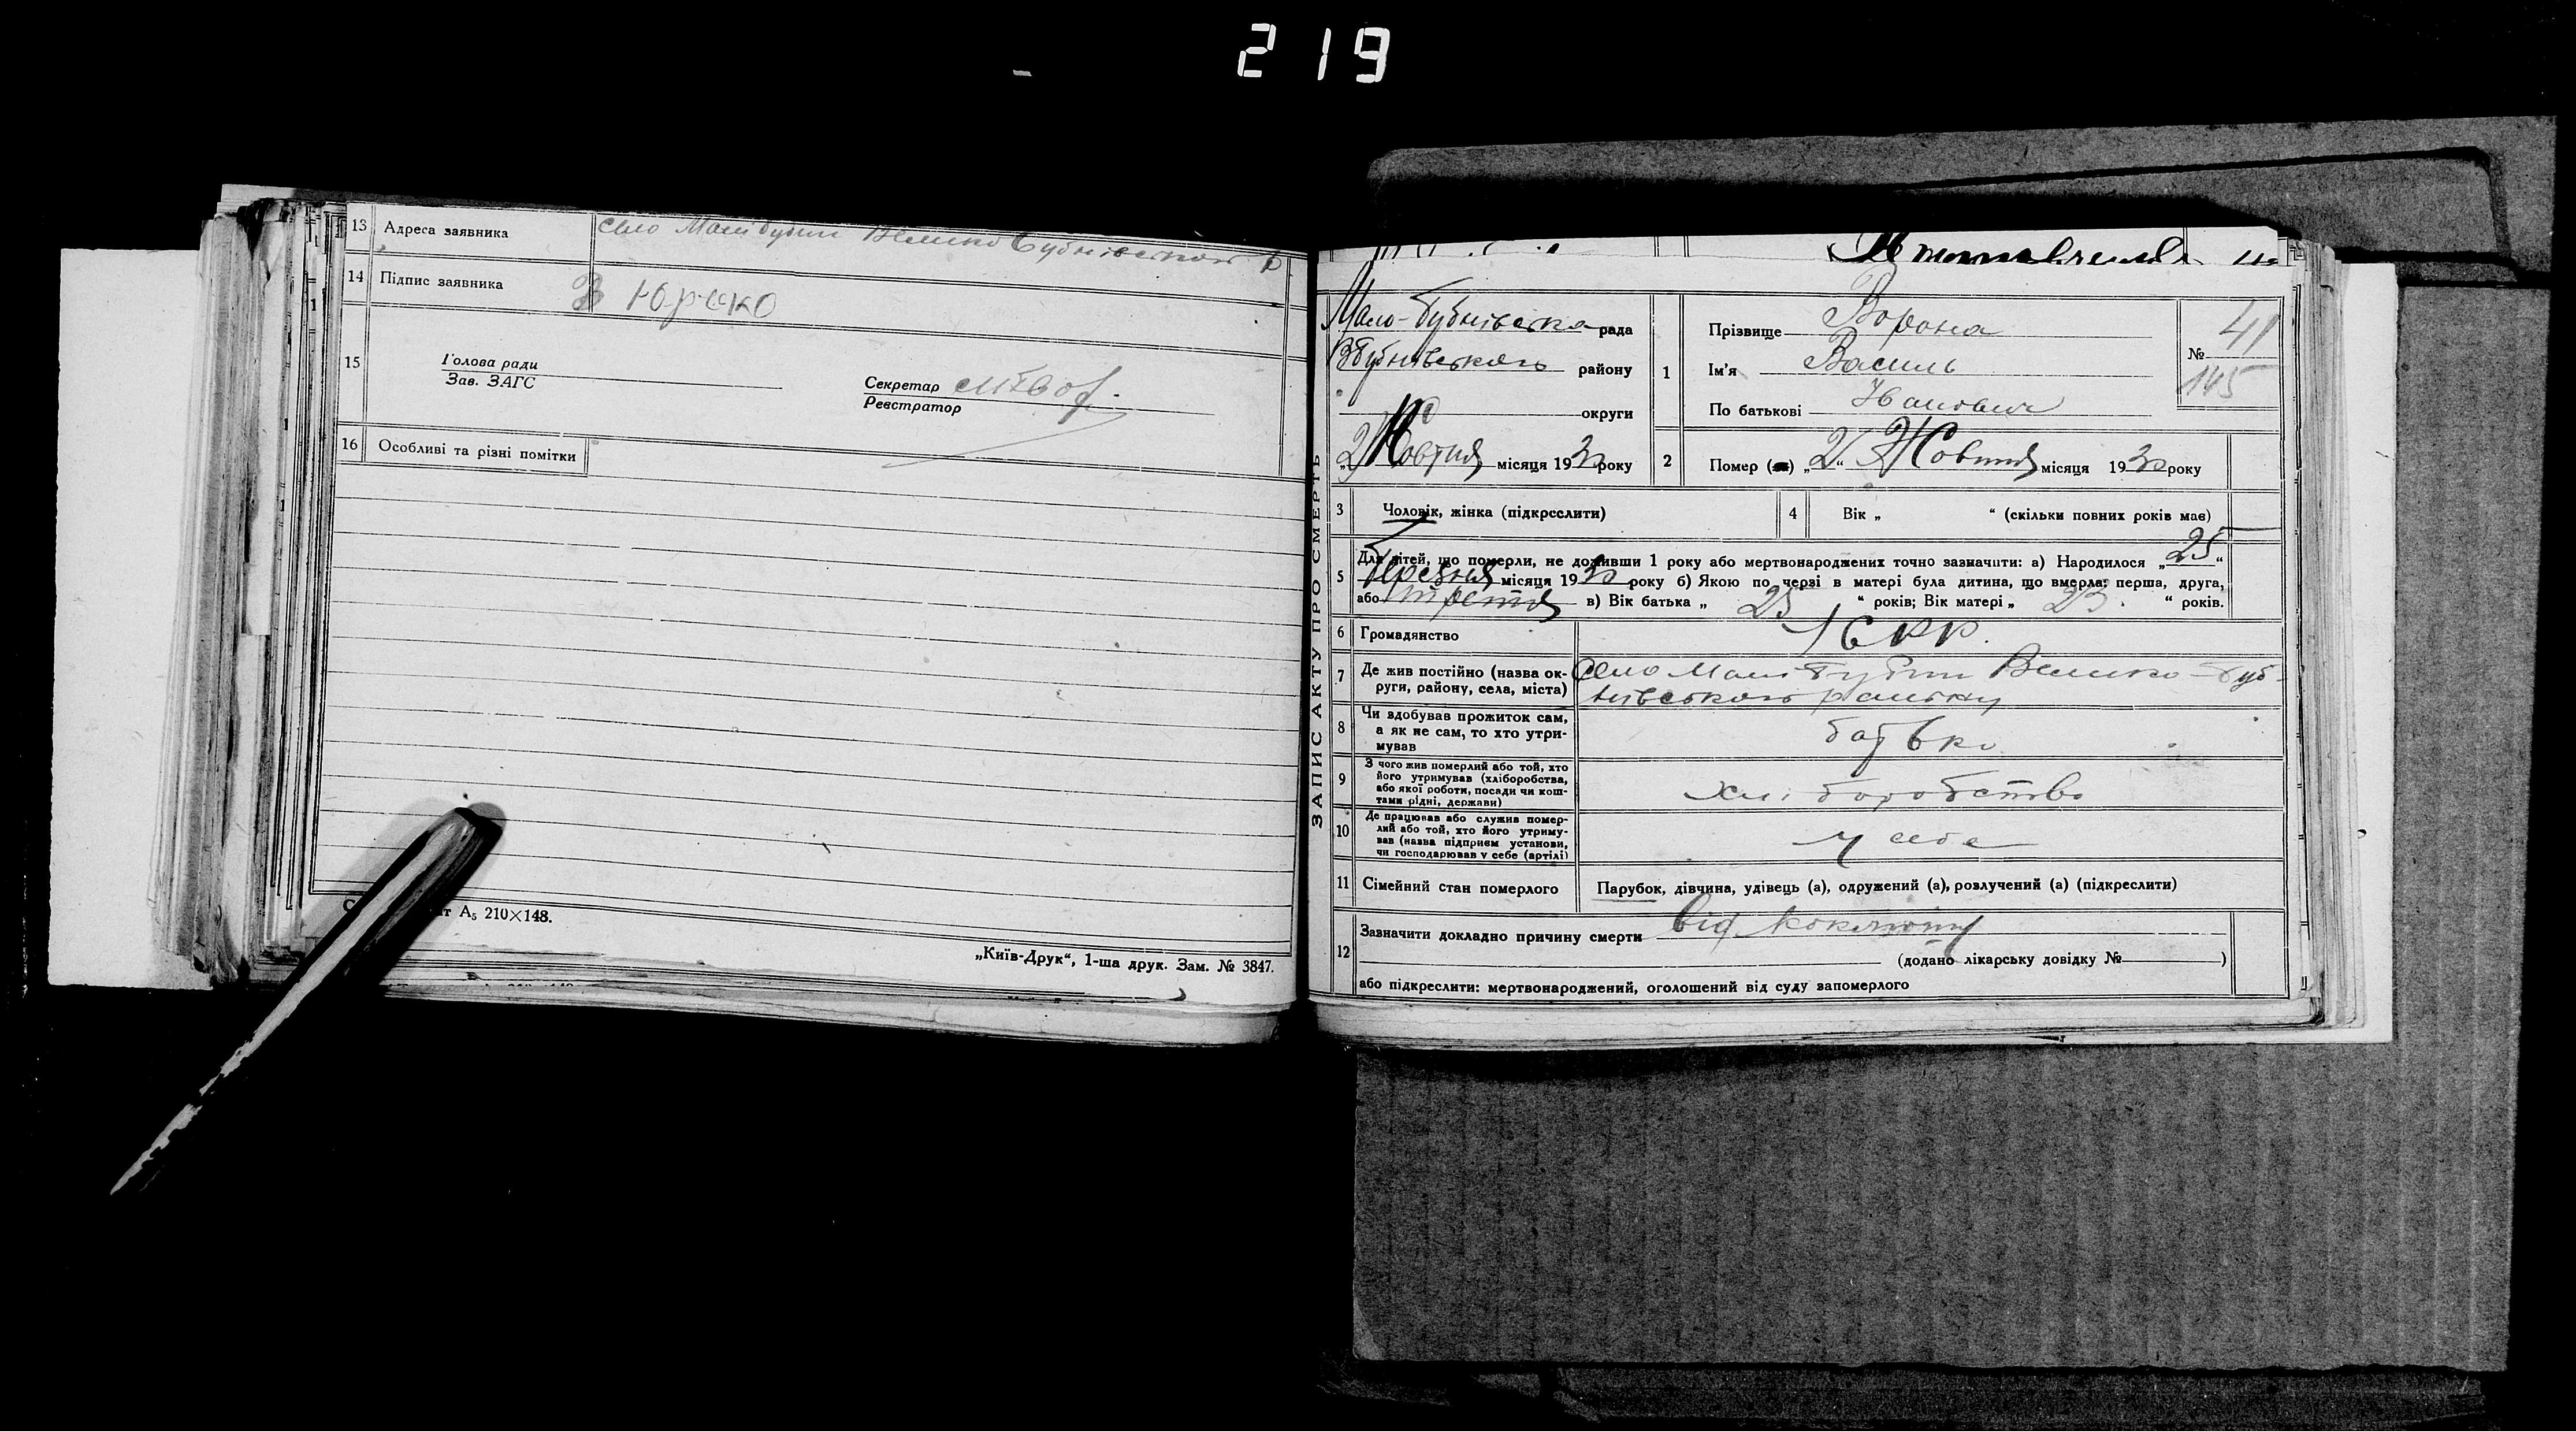 219
13 Адреса заявника село Малі Бубни Велико Бубнівського р
14 Підпис заявника
15 Голова ради
Зав. ЗАГС
Секретар
Реєстратор
16 Особливі та різні помітки
т А₅ 210×148.
„Київ-Друк“, 1-ша друк. Зам. № 3847.
ЗАПИС АКТУ ПРО СМЕРТЬ
Мало-Бубнівська рада
ВБубнівського району
округи
„2 Жовтня місяця 1930 року
1 Прізвище Ворона
Ім'я Василь
По батькові Іванович
№ 41
145
2 Помер (ла) „2“ Жовтня місяця 1930 року
3 Чоловік, жінка (підкреслити)
4 Вік „ “ (скільки повних років має)
5 Для дітей, що померли, не доживши 1 року або мертвонароджених точно зазначити: а) Народилося „25“
Березня місяця 1930 року б) Якою по черзі в матері була дитина, що вмерла: перша, друга,
або третя в) Вік батька „25“ років; Вік матері „23“ років.
6 Громадянство УСРР.
7 Де жив постійно (назва ок-
руги, району, села, міста)
Село Малі Бубни Велико-Буб-
нівського району
8 Чи здобував прожиток сам,
а як не сам, то хто утри-
мував
батько
9 З чого жив померлий або той, хто
його утримував (хліборобства,
або якої роботи, посади чи кош-
тами рідні, держави)
хліборобство
10 Де працював або служив помер-
лий або той, хто його утриму-
вав (назва підприєм установи,
чи господарював у себе (артілі)
у себе
11 Сімейний стан померлого Парубок, дівчина, удівець (а), одружений (а), розлучений (а) (підкреслити)
12 Зазначити докладно причину смерти від коклюшу
(додано лікарську довідку № )
або підкреслити: мертвонароджений, оголошений від суду запомерлого